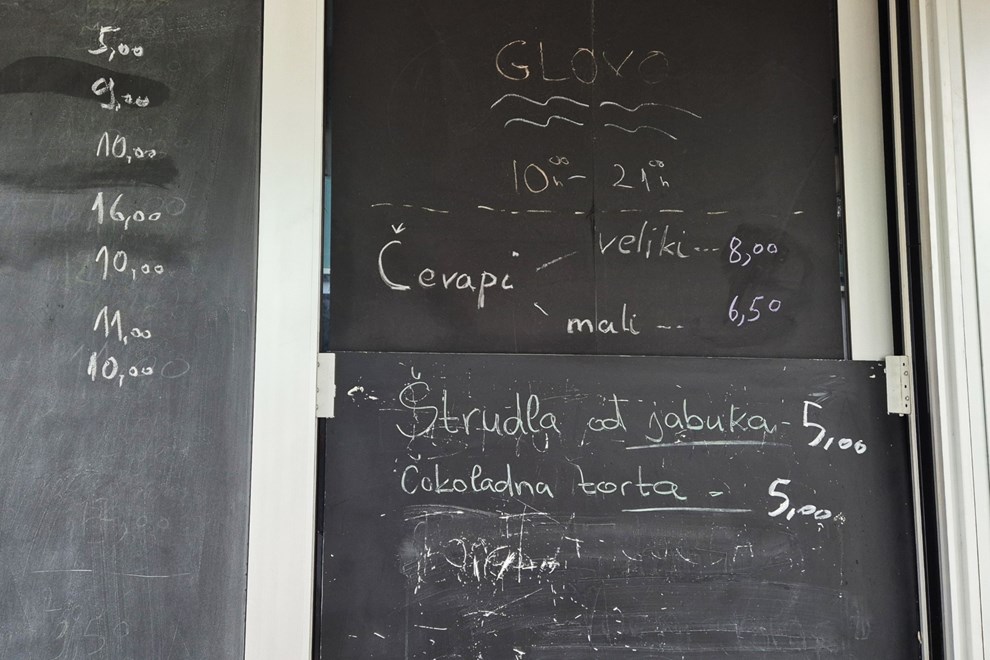 5,00
9,00
10,00
16,00
10,00
11,00
10,00
GLOVO
10⁰⁰h - 21⁰⁰h
Čevapi
veliki --- 8,00
mali --- 6,50
Štrudla od jabuka - 5,00
Čokoladna torta - 5,00